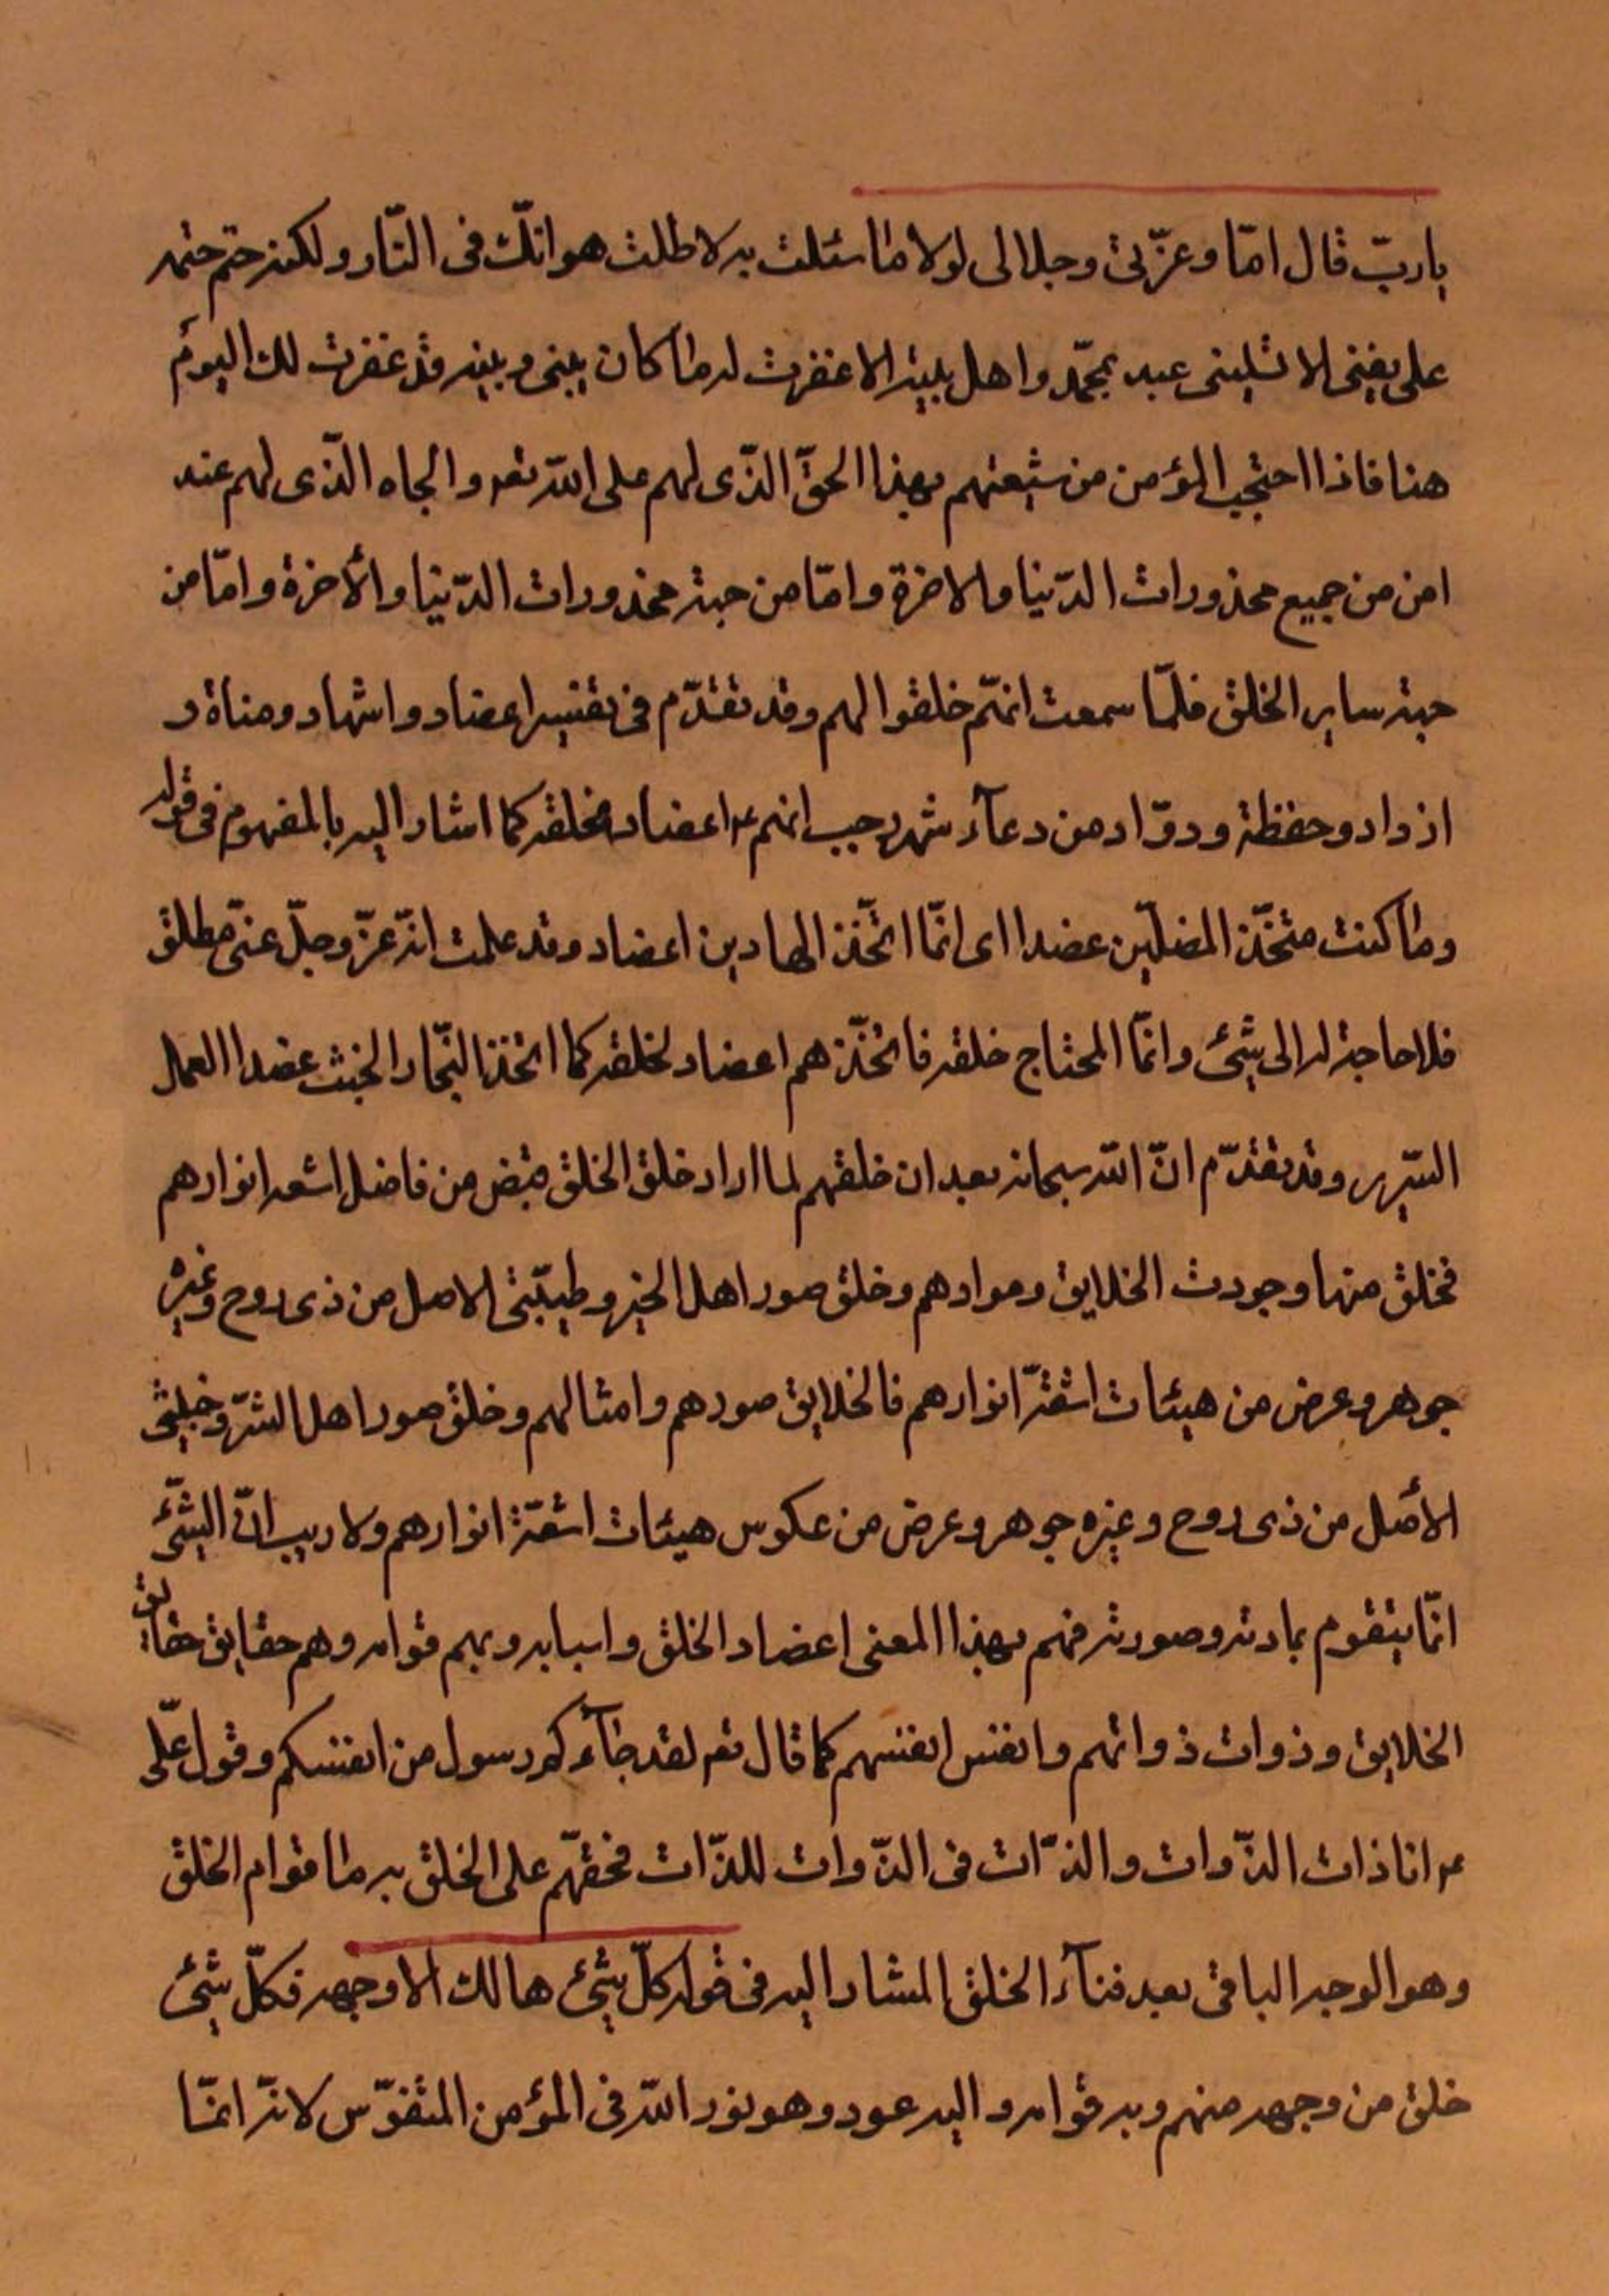 يا ربّ قال امّا وعزّتى وجلالى لولا ما سئلت به لاطلت هوانك فى النّار ولكنه حتم حتمه
على نفسى لا يسئلنى عبد بمحمّد واهل بيته الا غفرت له ما كان بينى وبينه وقد غفرت لك اليوم
هنا فاذا احتجب المؤمن من شيعتهم بهذا الحقّ الذّى لهم على الله تعه والجاه الذّى لهم عند
امن من جميع محذورات الدّنيا والاخرة وامّا من جهة محذورات الدّنيا والأخرة وامّا من
جهة ساير الخلق فلمّا سمعت انهّم خلقوا لهم وقد تقدّم فى تفسير اعضاد واشهاد ومناة و
ازواد وحفظة وروّاد من دعآء شهر رجب انهم ع اعضاد لخلقه كما اشار اليه بالمفهوم فى قوله
وما كنت متخّذ المضلّين عضدا اى انمّا اتخّذ الهادين اعضاد وقد علمت انّه عزّ وجلّ غنىّ مطلق
فلا حاجة له الى شئ وانمّا المحتاج خلقه فاتخّذهم اعضاد لخلقه كما اتخذ النجّار الخشب عضدا لعمل
السّرير وقد تقدّم انّ الله سبحانه بعد ان خلقهم لما اراد خلق الخلق قبض من فاضل اشعه انوارهم
فخلق منها وجودت الخلايق وموادهم وخلق صور اهل الخير وطيّبتى الاصل من ذى روح وغيره
جوهر وعرض من هيئات اشعّة انوارهم فالخلايق صورهم وامثالهم وخلق صور اهل الشرّ وخبيثى
الأصل من ذى روح وغيره جوهر وعرض من عكوس هيئات اشعّة انوارهم ولا ريب انّ الشّئ
انمّا يتقوم بمادته وصورته فهم بهذا المعنى اعضاد الخلق واسبابه وبهم قوامه وهم حقايق حقايق
الخلايق وذوات ذواتهم وانفس انفسهم كما قال تعه لقد جآءكم رسول من انفسكم وقول علّى
ع انا ذات الذّوات والذّات فى الذّوات للذّات فحقهّم على الخلق به ما قوام الخلق
وهو الوجه الباقى بعد فنآء الخلق المشار اليه فى قوله كلّ شئ هالك الا وجهه فكلّ شئ
خلق من وجهه منهم وبه قوامه واليه عود وهو نور الله فى المؤمن المتفرّس لانّه انمّا